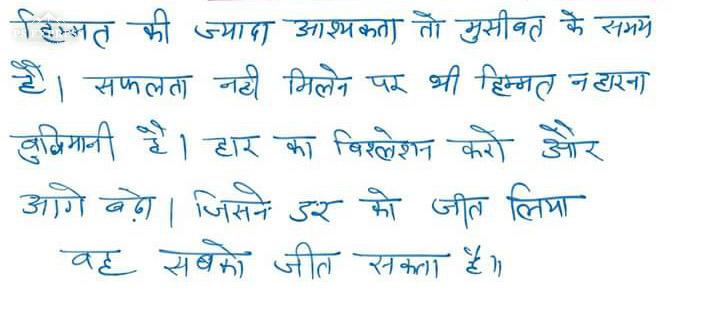 हिम्मत की ज्यादा आश्यकता तो मुसीबत के समय
है। सफलता नही मिलने पर भी हिम्मत न हारना
बुद्धिमानी है। हार का विश्लेशन करो और
आगे बढ़ो। जिसने डर को जीत लिया
वह सबको जीत सकता है॥